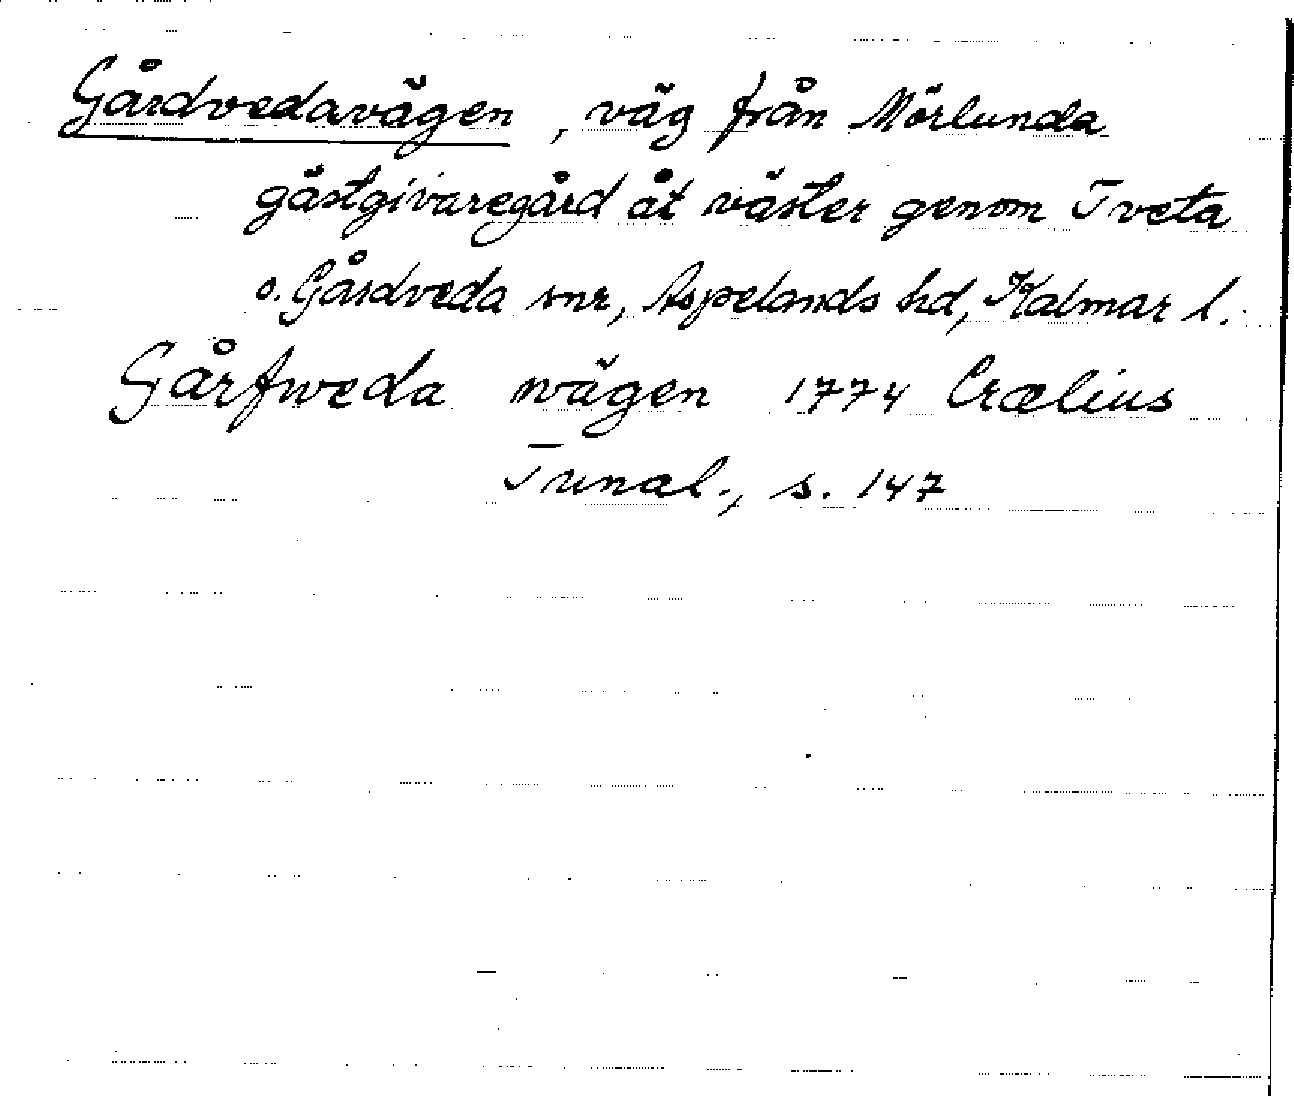 Gårdvedavägen, väg från Mörlunda
gästgivaregård åt väster genom Tveta
o. Gårdveda snr, Aspelands hd, Kalmar l.
Gårfweda wägen 1774 Crælius
Tunal., s. 147